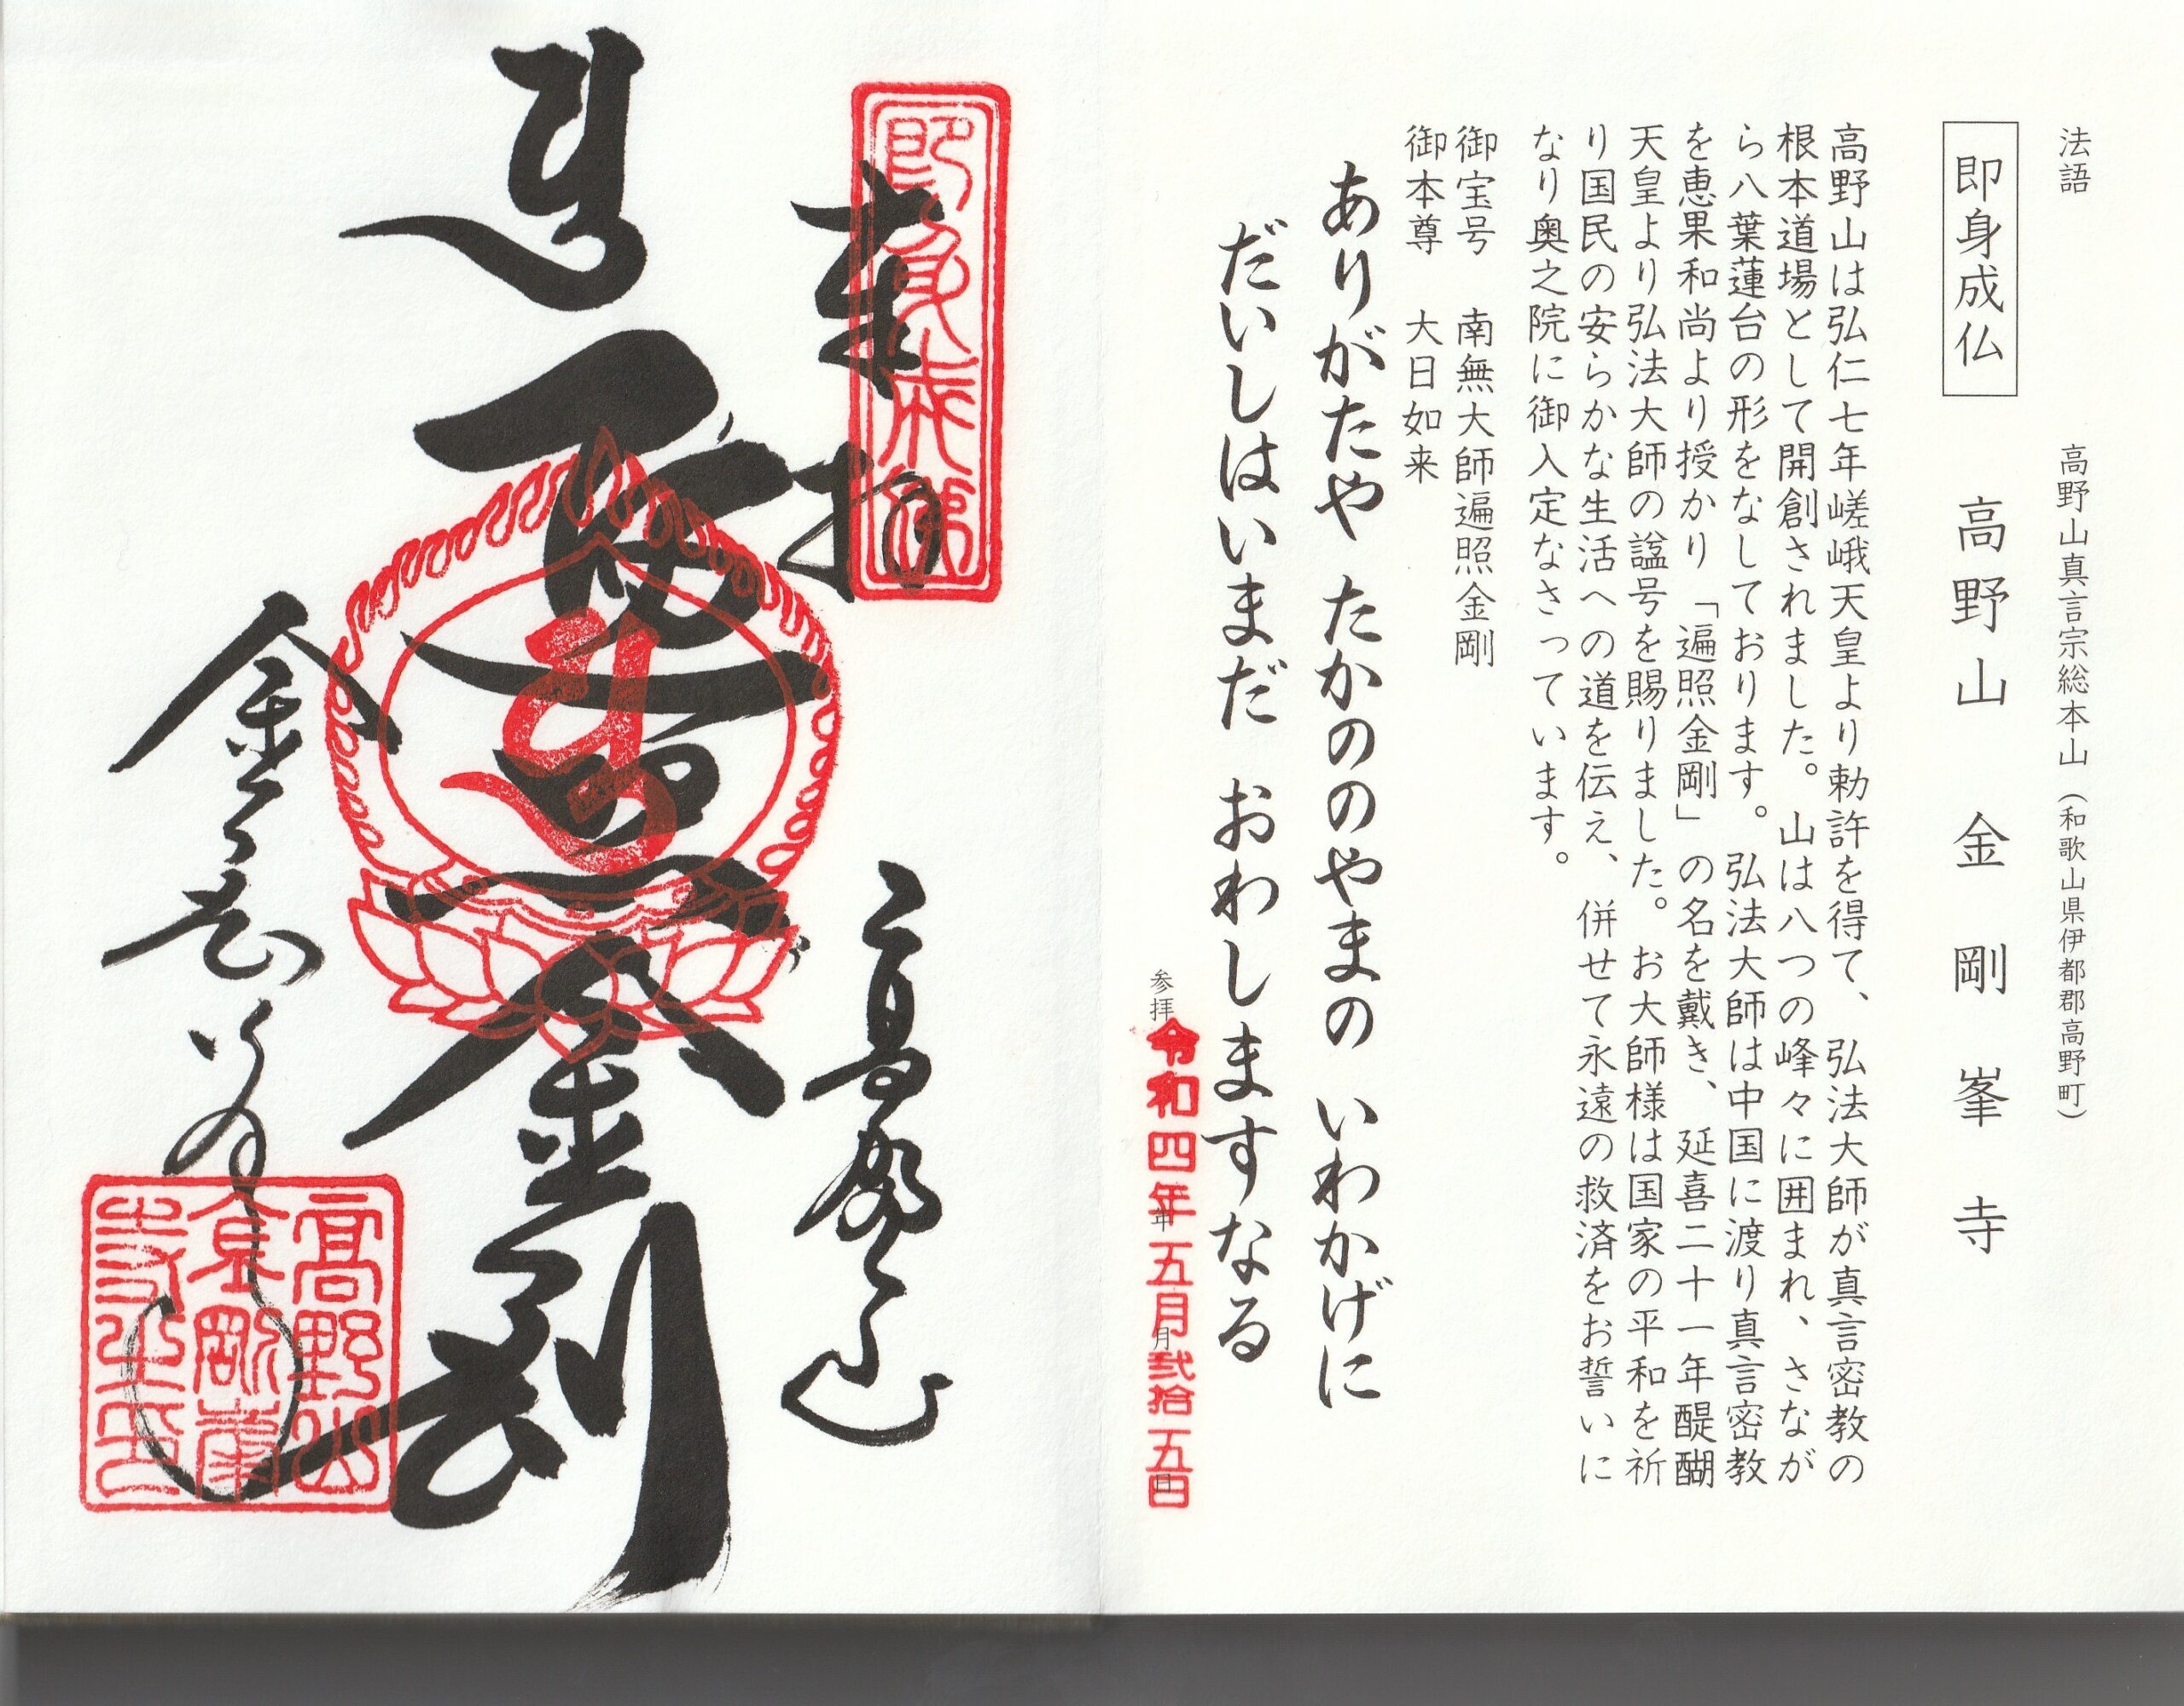 法語　高野山真言宗総本山（和歌山県伊都郡高野町）
即身成仏　高野山　金剛峯寺
高野山は弘仁七年嵯峨天皇より勅許を得て、弘法大師が真言密教の
根本道場として開創されました。山は八つの峰々に囲まれ、さなが
ら八葉蓮台の形をなしております。弘法大師は中国に渡り真言密教
を恵果和尚より授かり「遍照金剛」の名を戴き、延喜二十一年醍醐
天皇より弘法大師の諡号を賜りました。お大師様は国家の平和を祈
り国民の安らかな生活への道を伝え、併せて永遠の救済をお誓いに
なり奥之院に御入定なさっています。
御宝号　南無大師遍照金剛
御本尊　大日如来
ありがたや　たかののやまの　いわかげに
だいしはいまだ　おわしますなる
参拝　令和四年五月弐拾五日
年　月　日
即身成佛
奉拝
高野山
遍照金剛
金剛峯寺
高野山
金剛峯
寺之印